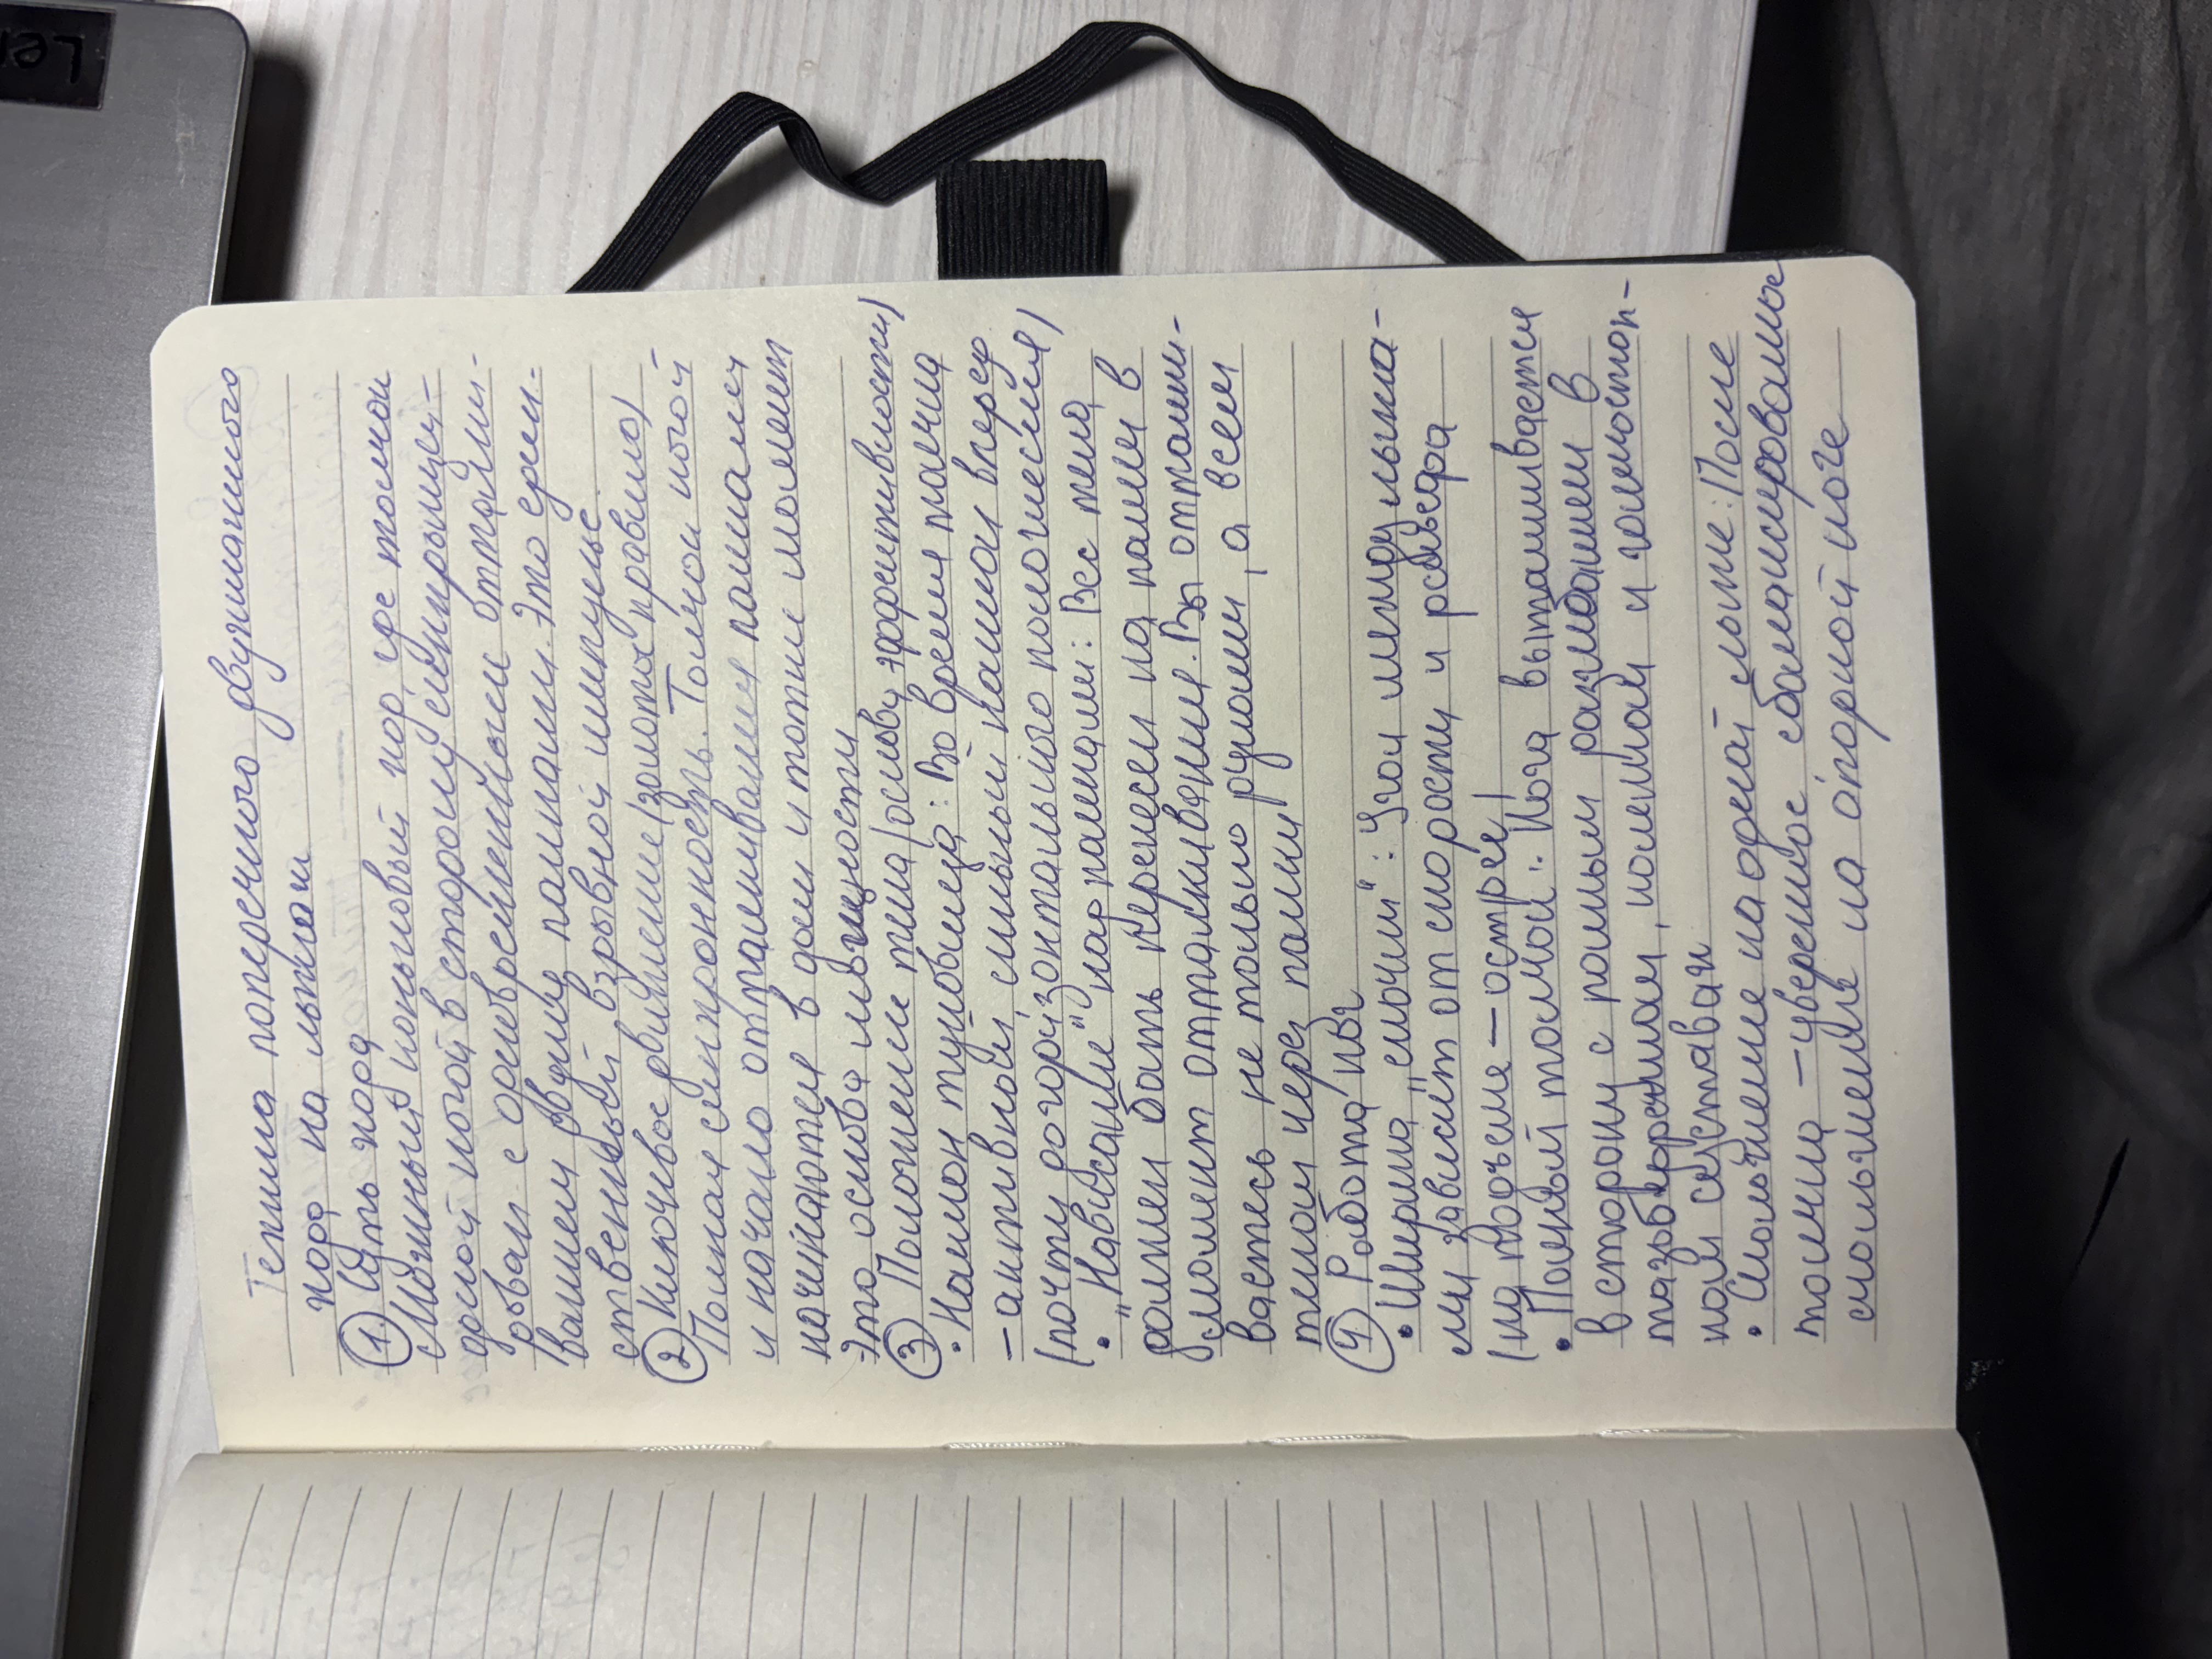 Техника поперечного двушажного
ход на лыжах
① Суть ход
Мощный коньковый ход, где толчок
одной ногой в сторону синхронизи-
рован с одновременным отталки-
ванием двумя палками. Это един-
ственный взрывной импульс
② Ключевое движение (золотые правило)
Полная синхронность. Толчок ногой
и начало отталкивания палками
начинаются в один и тот же момент
Это основа мощности
③ Положение тела (основа эффективности)
• Наклон туловища: Во время толчка
– активный, сильный наклон вперед
(почти до горизонтального положения)
• „Нависание" над палками: Вес тела
должен быть перенесен на палки в
момент отталкивания. Вы отталки-
ваетесь не только руками, а всем
телом через палки
④ Работа ног
• Ширина „елочки": Угол между лыжа-
ми зависит от скорости и рельефа
(на подъеме – острее)
• Полный толчок: Нога выталкивается
в сторону с полным разгибанием в
тазобедренном, коленном и голеностоп-
ном суставах
• Скольжение на одной лыже: После
толчка – уверенное сбалансированные
скольжение на опорной ноге
Len